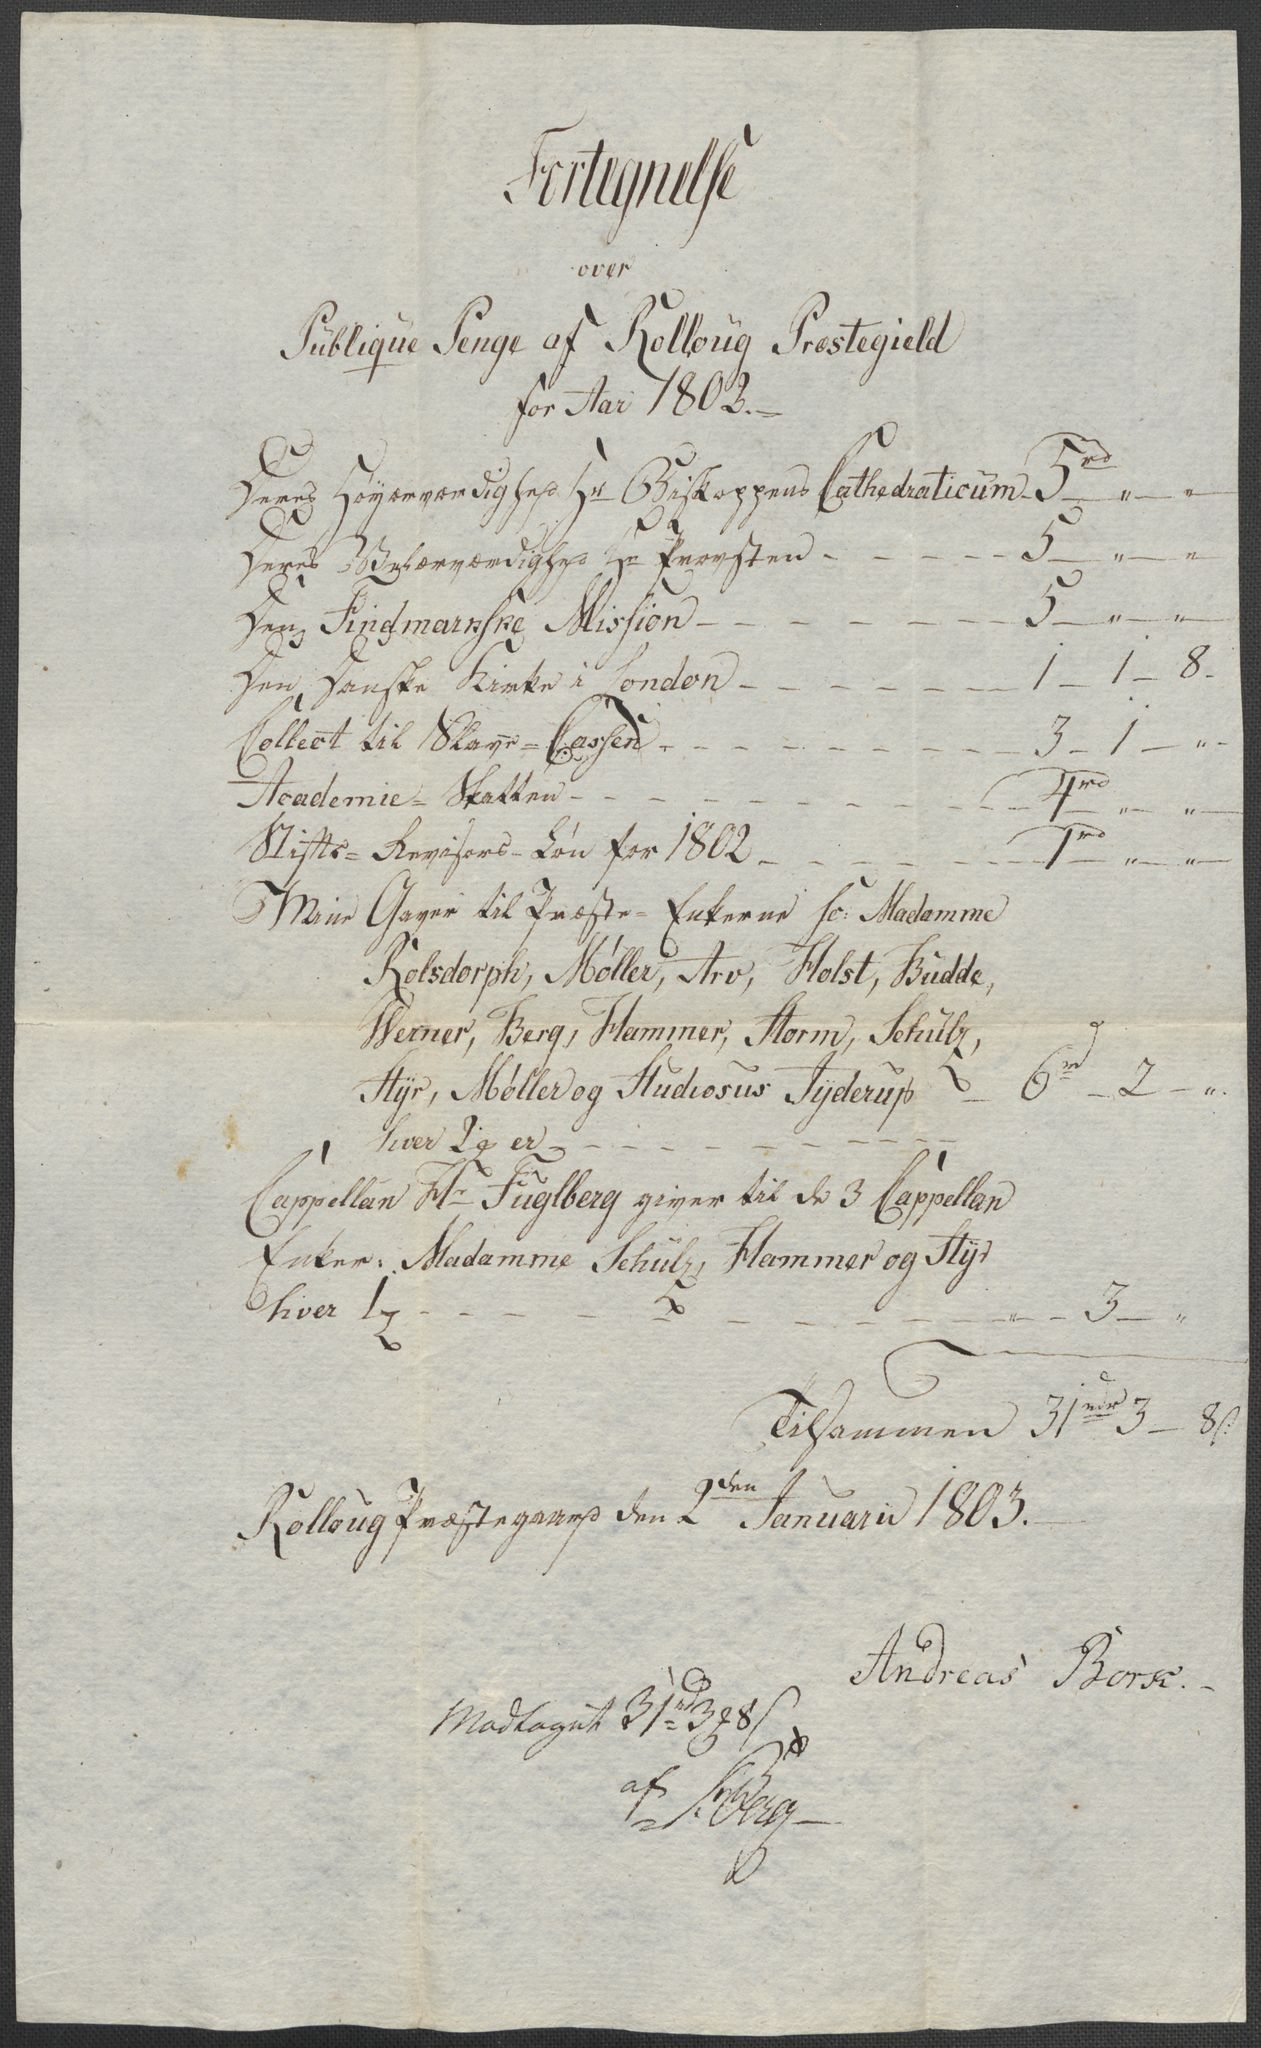 Fortegnelse
over
Publique Penge af Rolloug Præstegield
for Aar 1802.
Deres Høyærværdighed Hr Biskoppens Cathedraticum 5 rd " "
Deres Velærværdighed Hr Provsten - - - - - 5 " "
Den Findmarkske Mission - - - - - - - 5 " "
Den Danske Kirke i London - - - - - - - 1 - 1 - 8 -
Collect til Slave=Cassen - - - - - - - - 3 - 1 - " -
Academie=Skatten - - - - - - - - - 4 rd " "
Stifts=Revisors-Løn for 1802 - - - - - - 1 rd " "
Mine Gaver til Præste=Enkerne sc: Madamme
Rolsdorph, Møller, Arv, Holst, Budde,
Werner, Berg, Hammer, Storm, Schulz,
Styr, Møller og Studiosus Tyderup 6 rd - 2 - " -
hver 2 er - - - - - - - - - - - -
Cappellan Hr Fuglberg giver til de 3 Cappellan
Enker: Madamme Schulz, Hammer og Styr
hver 1 - - - - - - - - - - - " - 3 - "
Tilsammen 31 rdr 3 - 8 ß
Rolloug Præstegaard den 2den Januarii 1803.
Andreas Bork.
Modtaget 31 rd 3 8 ß
af Berg